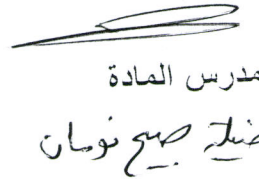 مدرس المادة
صبيح نومان